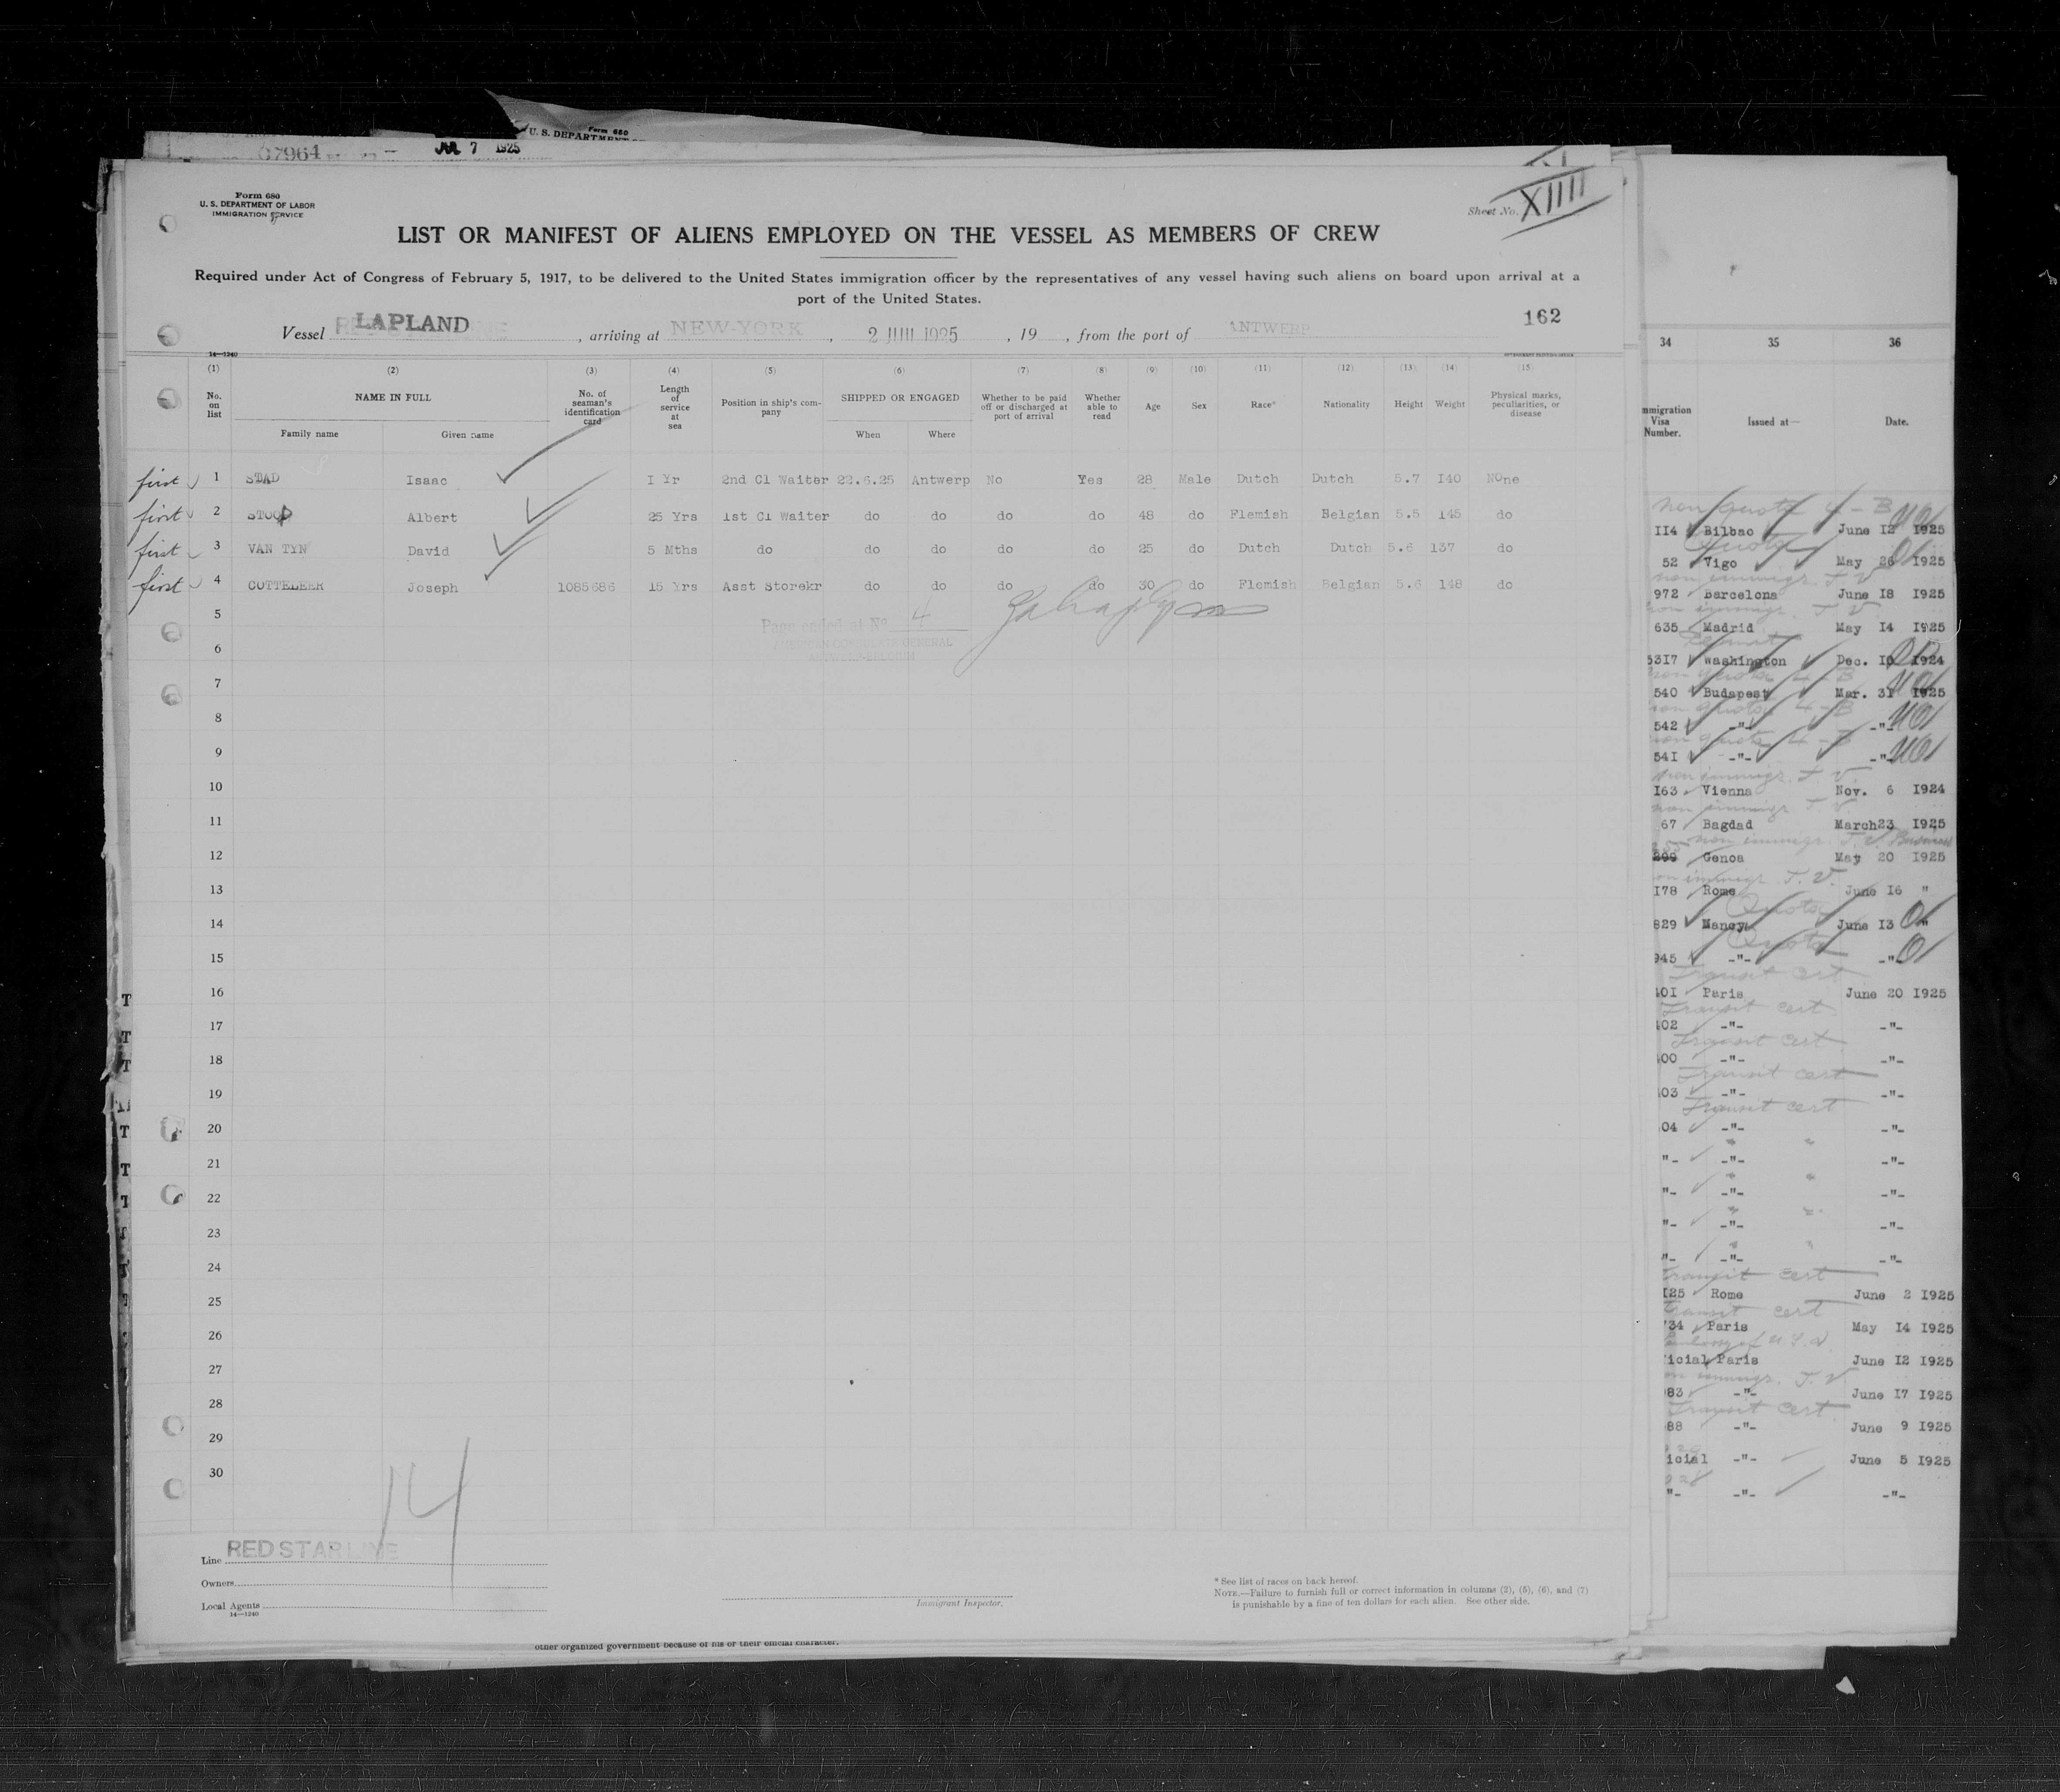 U. S. DEPARTMENT
Form 680
07961
JUL 7 1925
Form 680
U. S. DEPARTMENT OF LABOR
IMMIGRATION SERVICE
Sheet No. XIIII
LIST OR MANIFEST OF ALIENS EMPLOYED ON THE VESSEL AS MEMBERS OF CREW
Required under Act of Congress of February 5, 1917, to be delivered to the United States immigration officer by the representatives of any vessel having such aliens on board upon arrival at a
port of the United States.
162
Vessel LAPLAND, arriving at NEW-YORK, 2 JUIL 1925, 19 , from the port of ANTWERP
14—1240
(1) (2) (3) (4) (5) (6) (7) (8) (9) (10) (11) (12) (13) (14) (15)
No. on list NAME IN FULL No. of seaman's identification card Length of service at sea Position in ship's company SHIPPED OR ENGAGED Whether to be paid off or discharged at port of arrival Whether able to read Age Sex Race* Nationality Height Weight Physical marks, peculiarities, or disease
Family name Given name When Where
first 1 STAD Isaac I Yr 2nd Cl Waiter 22.6.25 Antwerp No Yes 28 Male Dutch Dutch 5.7 I40 NOne
first 2 STOOP Albert 25 Yrs 1st Cl Waiter do do do do 48 do Flemish Belgian 5.5 145 do
first 3 VAN TYN David 5 Mths do do do do do 25 do Dutch Dutch 5.6 137 do
first 4 COTTELEER Joseph 1085686 15 Yrs Asst Storekr do do do do 30 do Flemish Belgian 5.6 148 do
5
Page ended at No 4
AMERICAN CONSULATE GENERAL
ANTWERP-BELGIUM
6
7
8
9
10
11
12
13
14
15
16
17
18
19
20
21
22
23
24
25
26
27
28
29
30
14
Line RED STAR LINE
Owners
Local Agents
14—1240
Immigrant Inspector.
* See list of races on back hereof.
NOTE.—Failure to furnish full or correct information in columns (2), (5), (6), and (7)
is punishable by a fine of ten dollars for each alien. See other side.
other organized government because of his or their official character.
34 35 36
mmigration Visa Number. Issued at— Date.
non quota 4-B
114 Bilbao June 12 1925
Quota
52 Vigo May 26 1925
non immigr. T.V
972 Barcelona June 18 1925
non immigr. T.V
635 Madrid May 14 1925
Permit
5317 Washington Dec. 10 1924
non quota 4-B
540 Budapest Mar. 31 1925
non quota 4-B
542 -"- -"-
non quota 4-B
541 -"- -"-
non immigr. T.V.
163 Vienna Nov. 6 1924
non immigr. T.V.
67 Bagdad March23 1925
non immigr. T.V. Business
299 Genoa May 20 1925
on immigr. T.V.
178 Rome June 16 "
Quota
829 Nancy June 13 "
Quota
945 -"- -"-
Transit cert
401 Paris June 20 1925
Transit cert
402 -"- -"-
Transit cert
400 -"- -"-
Transit cert
403 -"- -"-
Transit cert
04 -"- -"-
"- -"- -"-
"- -"- -"-
"- -"- -"-
"- -"- -"-
Transit cert
125 Rome June 2 1925
Transit cert
734 Paris May 14 1925
Embassy of U.S.A.
icial Paris June 12 1925
on immigr. T.V.
83 -"- June 17 1925
Transit cert
88 -"- June 9 1925
icial -"- June 5 1925
"- -"- -"-